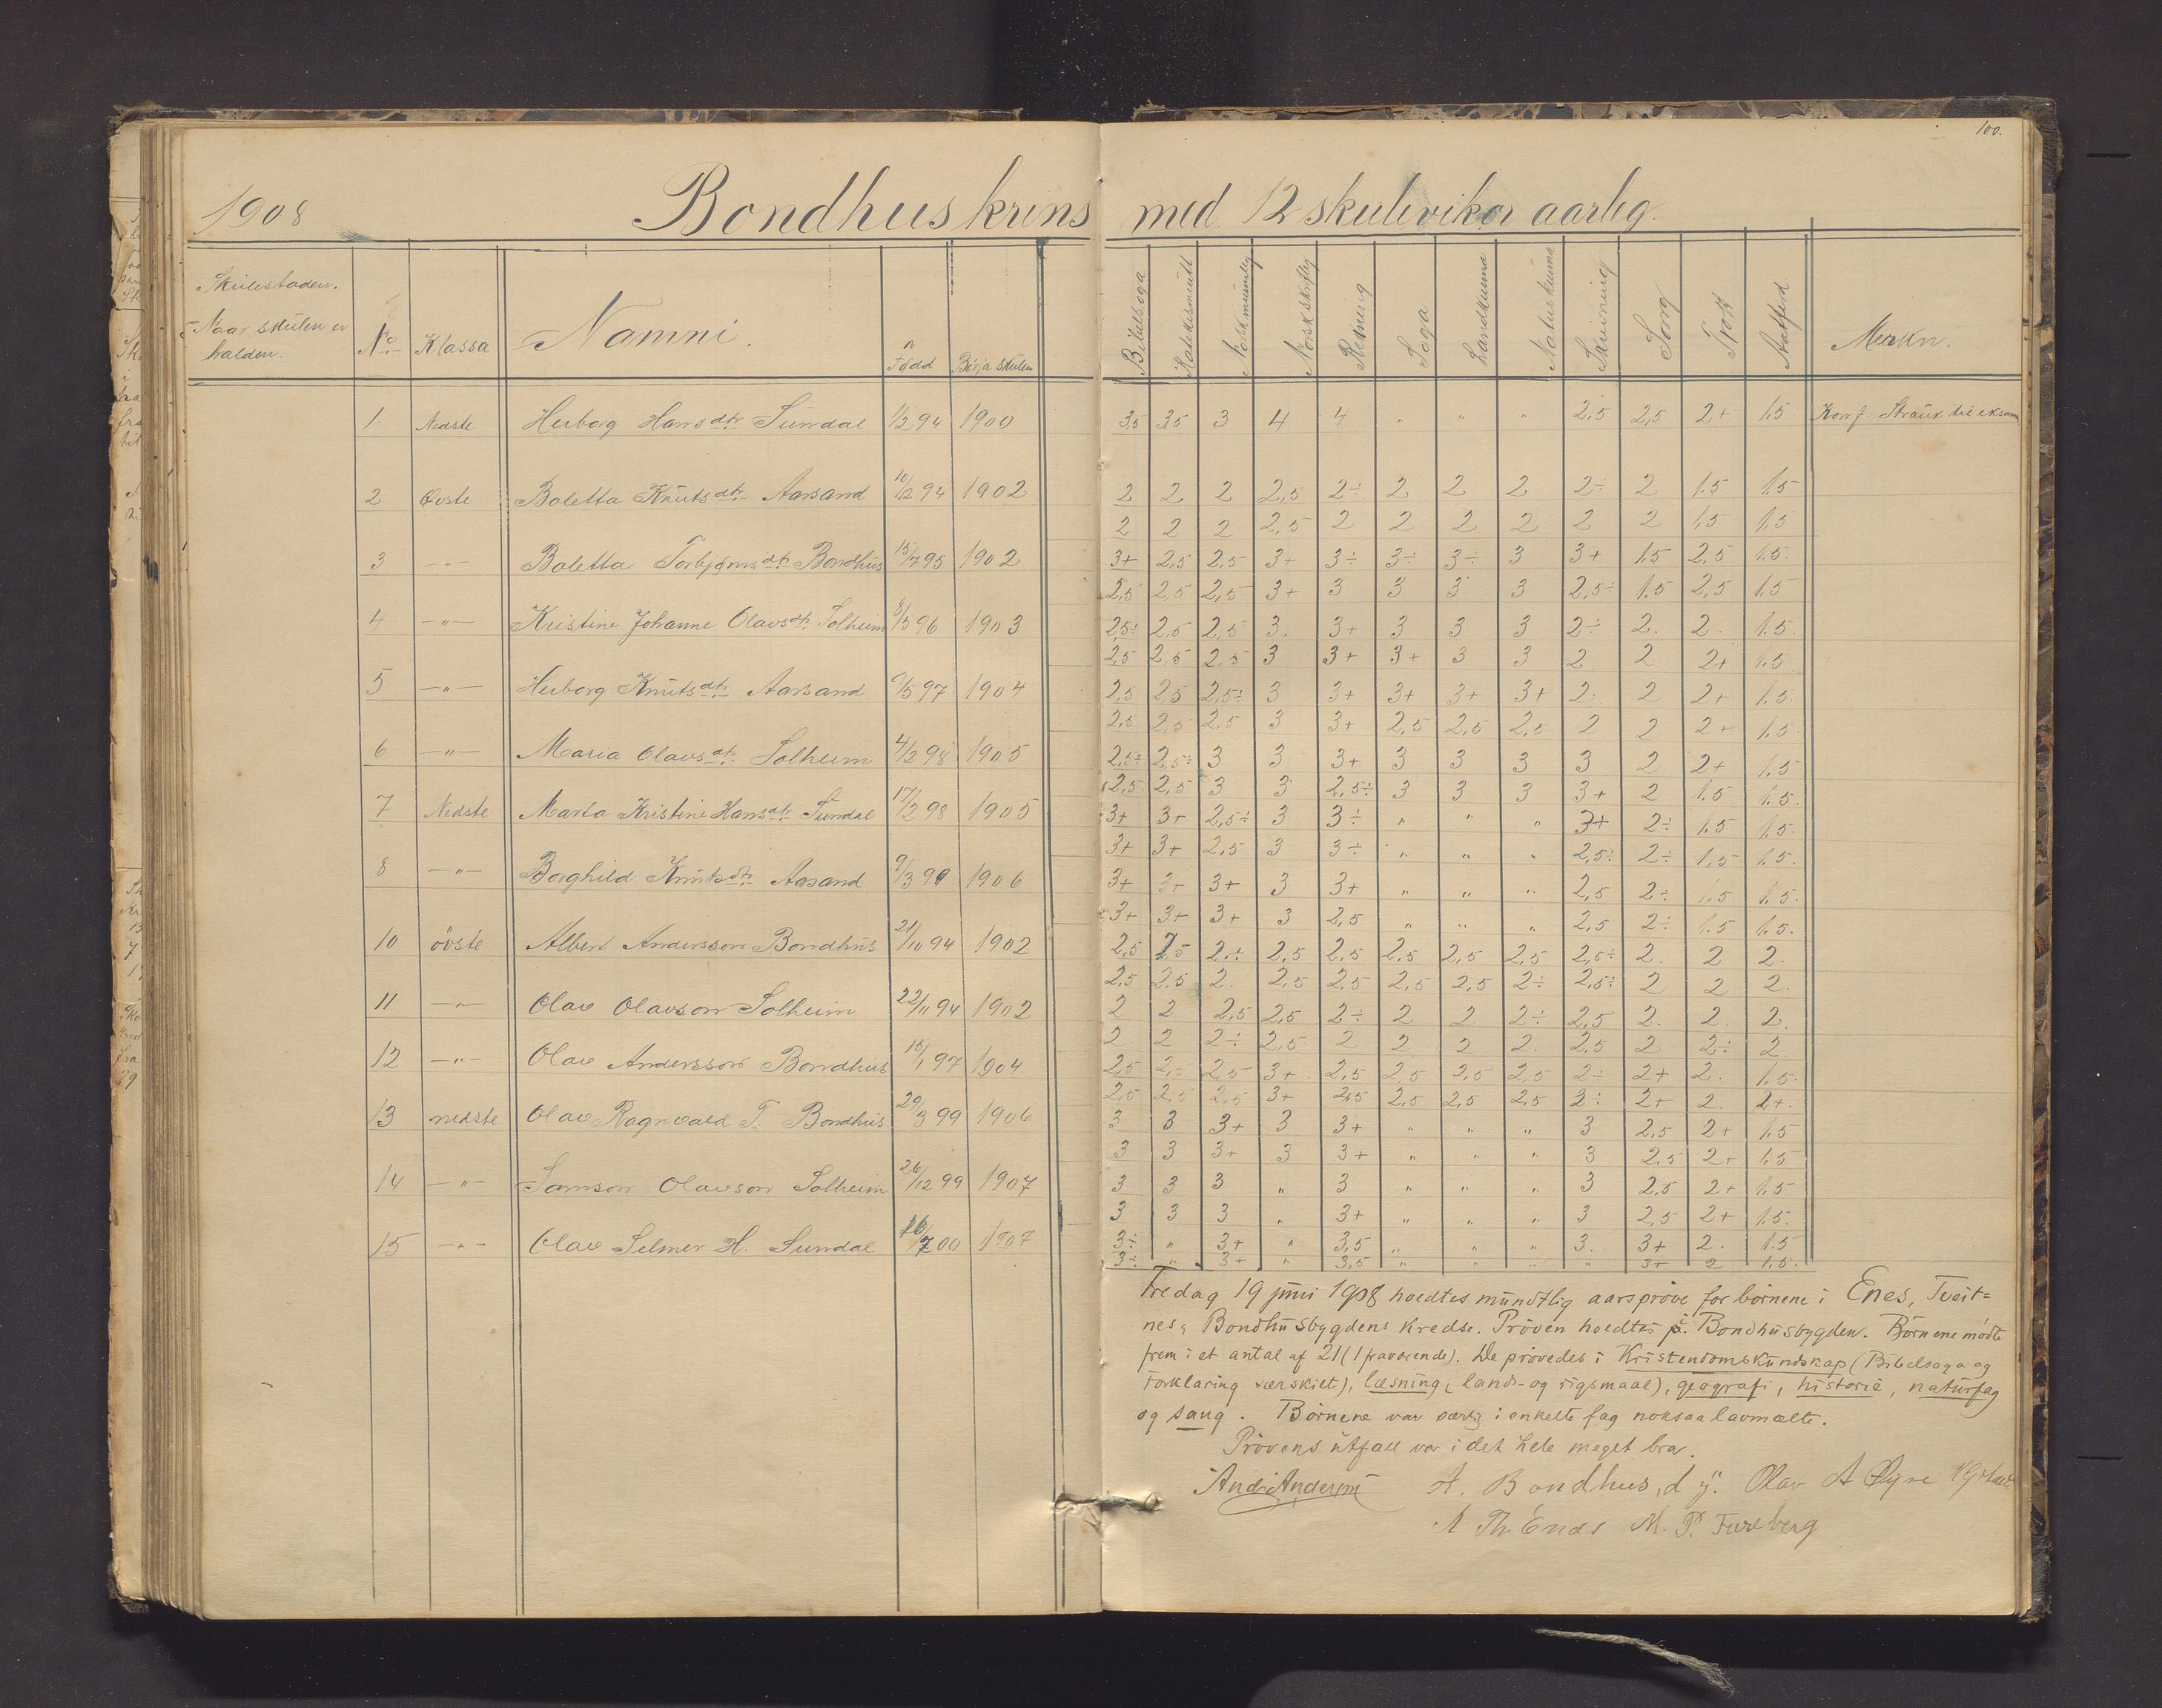 100.
1908 Bondhus krins med 12 skulevikor aarleg.
Skulestaden.
Naar skulen er halden.
No Klassa Namni. Fødd Börja skulen
Bibelsoga Katekismutt Norsk munnleg Norsk skriftleg Rekning Soga Landkunna Naturkunna Skrivning Song Aatferd Merkn.
1. Nedste Herborg Hansdtr Sundal 1/2 94 1900 3,5 3,5 3 4 4 " " " 2,5 2,5 2+ 1,5 Konf. Strauk til eksamen
2 Övste Boletta Knutsdtr. Aarsand 10/12 94 1902 2 2 2 2,5 2÷ 2 2 2 2÷ 2 1.5 1,5
2 2 2 2,5 2 2 2 2 2 2 1,5 1,5
3 -"- Boletta Torbjørnsdtr. Bondhus 15/7 95 1902 3+ 2,5 2,5 3+ 3÷ 3÷ 3÷ 3 3+ 1.5 2,5 1.5.
2,5 2,5 2,5 3+ 3 3 3 3 2,5÷ 1.5 2,5 1,5
4 -"- Kristine Johanne Olavsdtr. Solheim 8/5 96 1903 2,5÷ 2,5 2,5 3. 3+ 3 3 3 2÷ 2. 2. 1.5.
2,5 2,5 2,5 3 3+ 3+ 3 3 2 2 2+ 1.5
5 -"- Herborg Knutsdtr. Aarsand 9/5 97 1904 2,5 2,5 2,5÷ 3 3+ 3+ 3+ 3+ 2. 2 2+ 1.5.
2,5 2,5 2,5 3 3+ 2,5 2,5 2,5 2 2 2+ 1.5
6 -"- Maria Olavsdtr. Solheim 4/2 98 1905 2,5÷ 2,5÷ 3 3 3+ 3 3 3 3 2 2+ 1,5
2,5 2,5 3 3 2,5÷ 3 3 3 3+ 2 1.5 1.5.
7 Nedste Marta Kristine Hansdtr Sundal 17/2 98 1905 3+ 3+ 2,5÷ 3 3÷ " " " 3+ 2÷ 1.5 1,5.
3+ 3+ 2,5 3 3÷ " " " 2,5÷ 2÷ 1,5 1.5.
8 -"- Borghild Knutsdtr Aasand 9/3 99 1906 3+ 3+ 3+ 3 3+ " " " 2,5 2÷ 1.5 1.5.
3+ 3+ 3+ 3 2,5 " " " 2,5 2÷ 1.5 1.5.
10 övste Albert Andersson Bondhus 21/10 94 1902 2,5 2,5 2÷ 2,5 2,5 2,5 2,5 2,5 2,5÷ 2. 2 2.
2,5 2,5 2. 2,5 2,5 2,5 2,5 2÷ 2,5÷ 2 2 2.
11 -"- Olav Olavson Solheim 22/11 94 1902 2 2 2,5 2,5 2÷ 2 2 2÷ 2,5 2. 2. 2.
2 2 2÷ 2,5 2 2 2 2. 2,5 2 2÷ 2.
12 -"- Olav Andersson Bondhus 15/1 97 1904 2,5 2,5 2,5 3+ 2,5 2,5 2,5 2,5 2÷ 2+ 2. 1.5.
2,5 2,5 2,5 3+ 2,5 2,5 2,5 2,5 2÷ 2+ 2. 2+.
13 nedste Olav Ragnvald T. Bondhus 29/3 99 1906 3 3 3+ 3 3+ " " " 3 2,5 2+ 1.5
3 3 3+ 3 3+ " " " 3 2,5 2+ 1.5
14 -"- Samson Olavson Solheim 26/12 99 1907 3 3 3 " 3 " " " 3 2,5 2+ 1.5
3 3 3 " 3+ " " " 3 2,5 2+ 1.5.
15 -"- Olav Selmer H. Sundal 16/7 00 1907 3÷ " 3+ " 3,5 " " " 3. 3+ 2. 1.5
3÷ " 3+ " 3,5 " " " " 3+ 2 1.5.
Fredag 19 juni 1908 holdtes mundtlig aarspröve for börnene i Enes, Tveit=
nes, Bondhusbygdens kredse. Pröven holdtes i Bondhusbygden. Börnene mödte
frem i et antal af 21 (1 fraværende). De prövedes i Kristendomskundskap (Bibelsoga og
Forklaring særskilt), læsning (lands- og rigsmaal), geografi, historie, naturfag
og sang. Börnene var særlig i enkelte fag noksaa lavmælte.
Prövens utfall var i det hele meget bra.
A. Bondhus, d y. Olav A Øyre
A Th Enes M. P. Fureberg